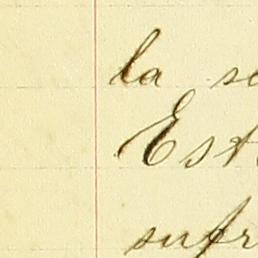 la se
Est
sufr